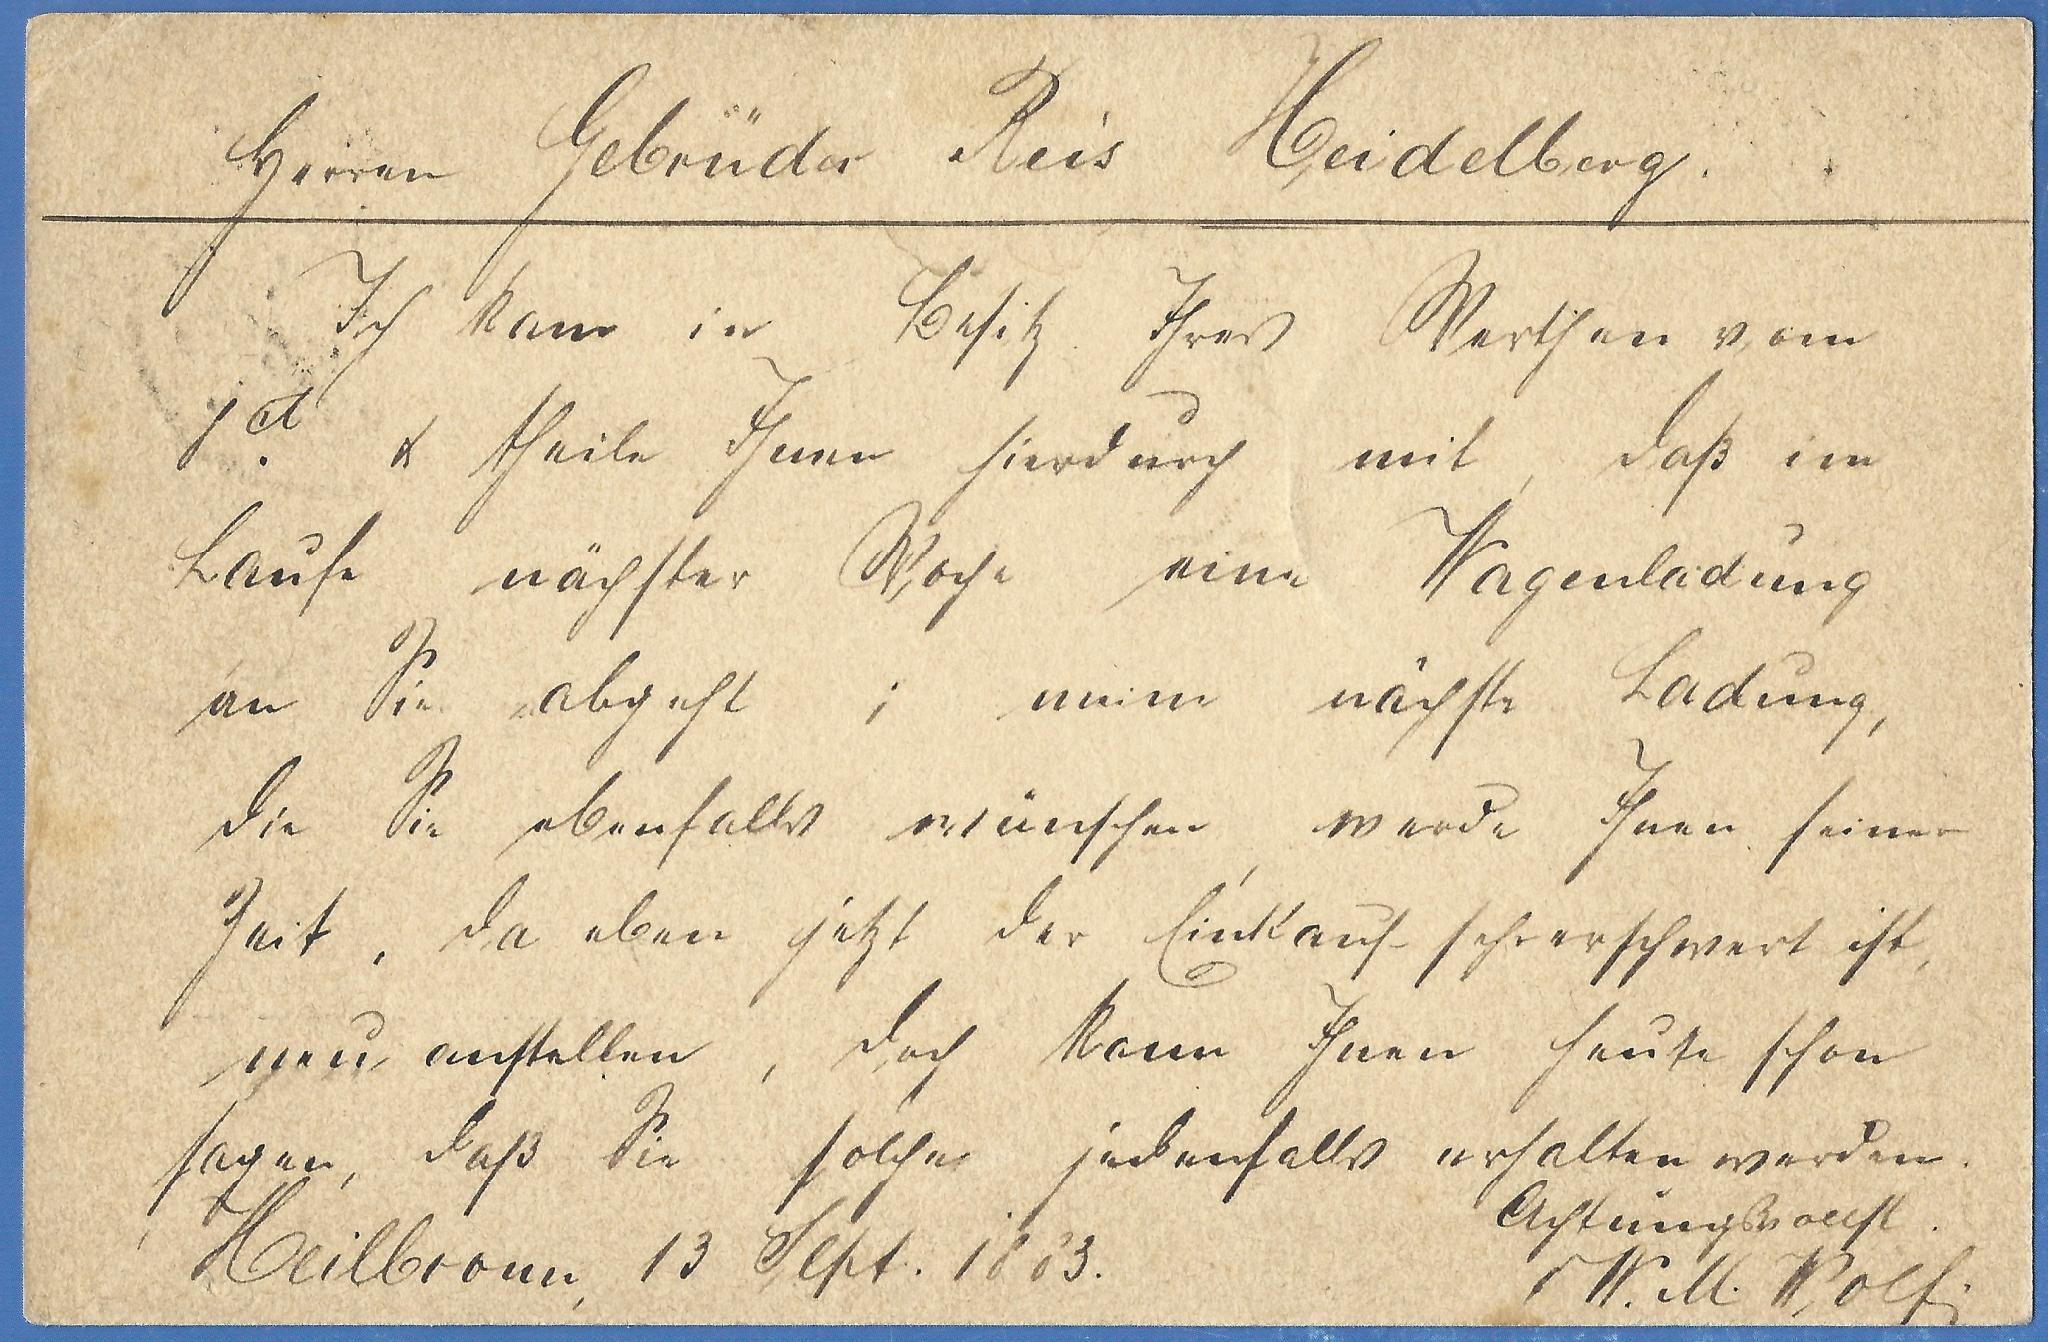 Herren Gebrüder Reis Heidelberg.
Ich kam in Besitz Ihres Werthen vom
& theile Ihnen hierdurch mit, daß im
Laufe nächster Woche eine Wagenladung
an Sie abgeht; meine nächste Ladung,
die Sie ebenfalls wünschen, werde Ihnen seiner
Zeit, da eben jetzt der Einkauf sehr erschwert ist,
neu anstellen, doch kann Ihnen heute schon
sagen, daß Sie solche jedenfalls erhalten werden.
Achtungsvollst.
Heilbronn, 13 Sept. 1883.
W. M. Wolf